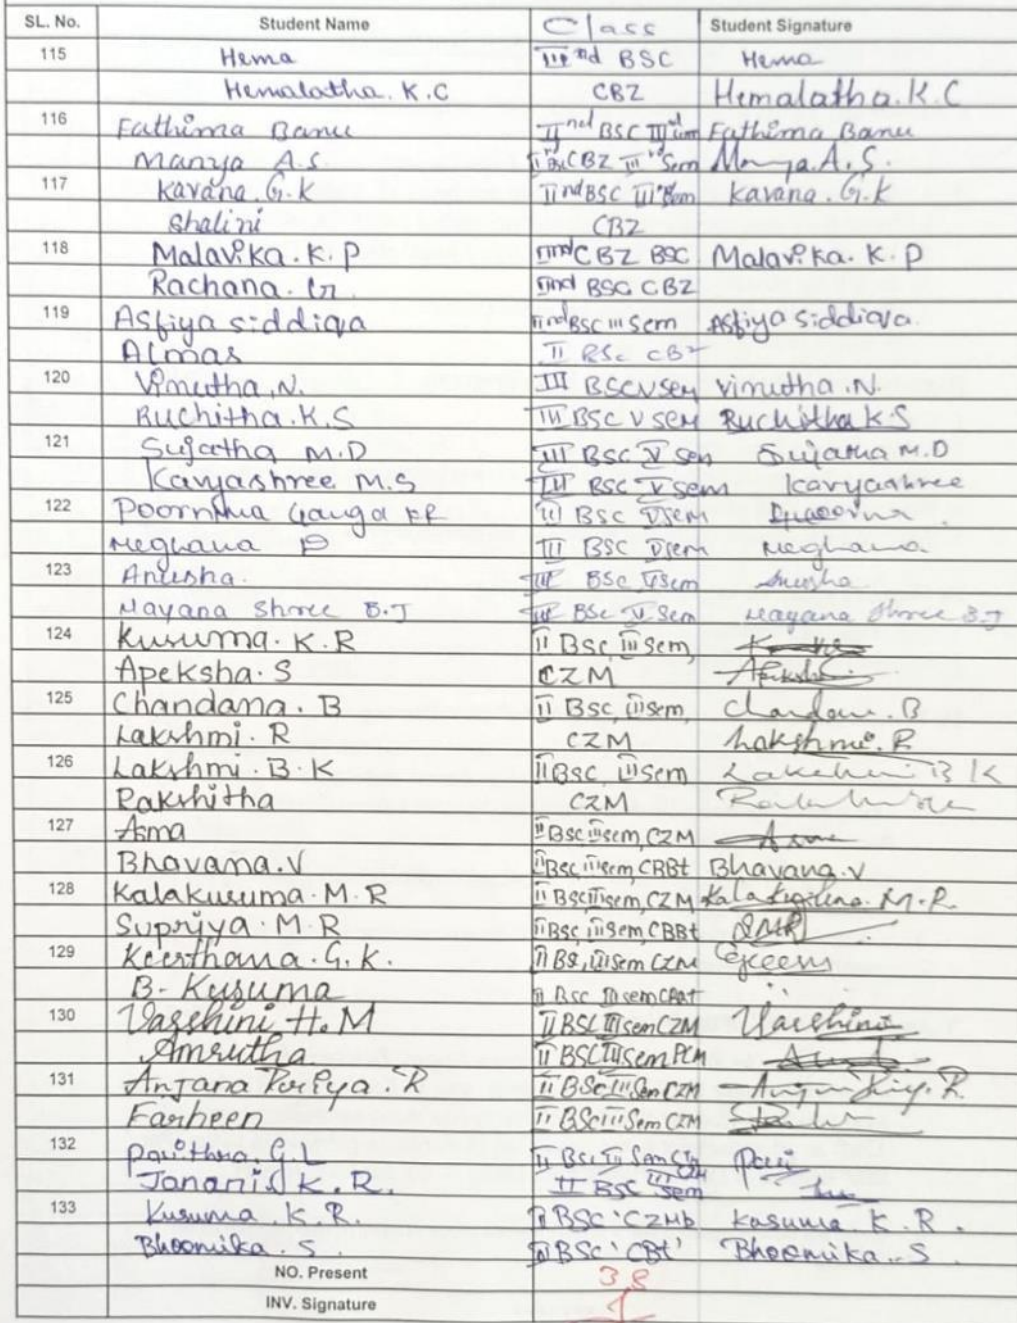 SL. No. Student Name Class Student Signature
115 Hema IIInd BSC Hema
Hemalatha. K.C CBZ Hemalatha.K.C
116 Fathima Banu IInd BSC III Fathima Banu
Manya A.S CBZ III Sem Manya.A.S.
117 Kavana.G.K IInd BSC III Sem Kavana.G.K
Shalini CBZ
118 Malavika.K.P CBZ BSC Malavika.K.P
Rachana. IInd BSC CBZ
119 Asfiya siddiqva IInd BSC III Sem Asfiya siddiqva
Almas II BSc CBZ
120 Vinutha.N. III BSC V Sem Vinutha.N.
Ruchitha.K.S III BSC V Sem Ruchitha K S
121 Sujatha M.D III BSC V Sem Sujatha M.D
Kavyashree M.S III BSC V Sem Kavyashree
122 Poornima Ganga III BSC V Sem
Meghana III BSC V Sem Meghana
123 Anusha. III BSC V Sem Anusha
Nayana Shree B.J III BSc V Sem Nayana Shree B.J
124 Kusuma.K.R II Bsc, III Sem,
Apeksha.S CZM Apeksha
125 Chandana.B II Bsc, III Sem, Chandan.B
Lakshmi.R CZM Lakshmi.R
126 Lakshmi.B.K II Bsc, III Sem Lakshmi B K
Rakshitha CZM
127 Asma II Bsc III sem, CZM
Bhavana.V II Bsc, III sem, CBBt Bhavana.V
128 Kalakusuma.M.R II Bsc III sem, CZM Kalakusuma.M.R.
Supriya.M.R II Bsc, III sem, CBBt SMR
129 Keerthana.G.K. II BS, III Sem CZM
B. Kusuma II Bsc III sem
130 Varshini H.M II BSC III Sem CZM Varshini
Amrutha II BSC III Sem PCM
131 Anjana Priya.R II BSc III Sem CZM
Farheen II BSc III Sem CZM
132 Pavithra.G.L II BSc III Sem Pavi
K.R. II BSC III Sem
133 Kusuma.K.R. BSC 'CZMb Kusuma K.R.
Bhoomika.S. BSc 'CBt' Bhoomika.S
NO. Present 38
INV. Signature